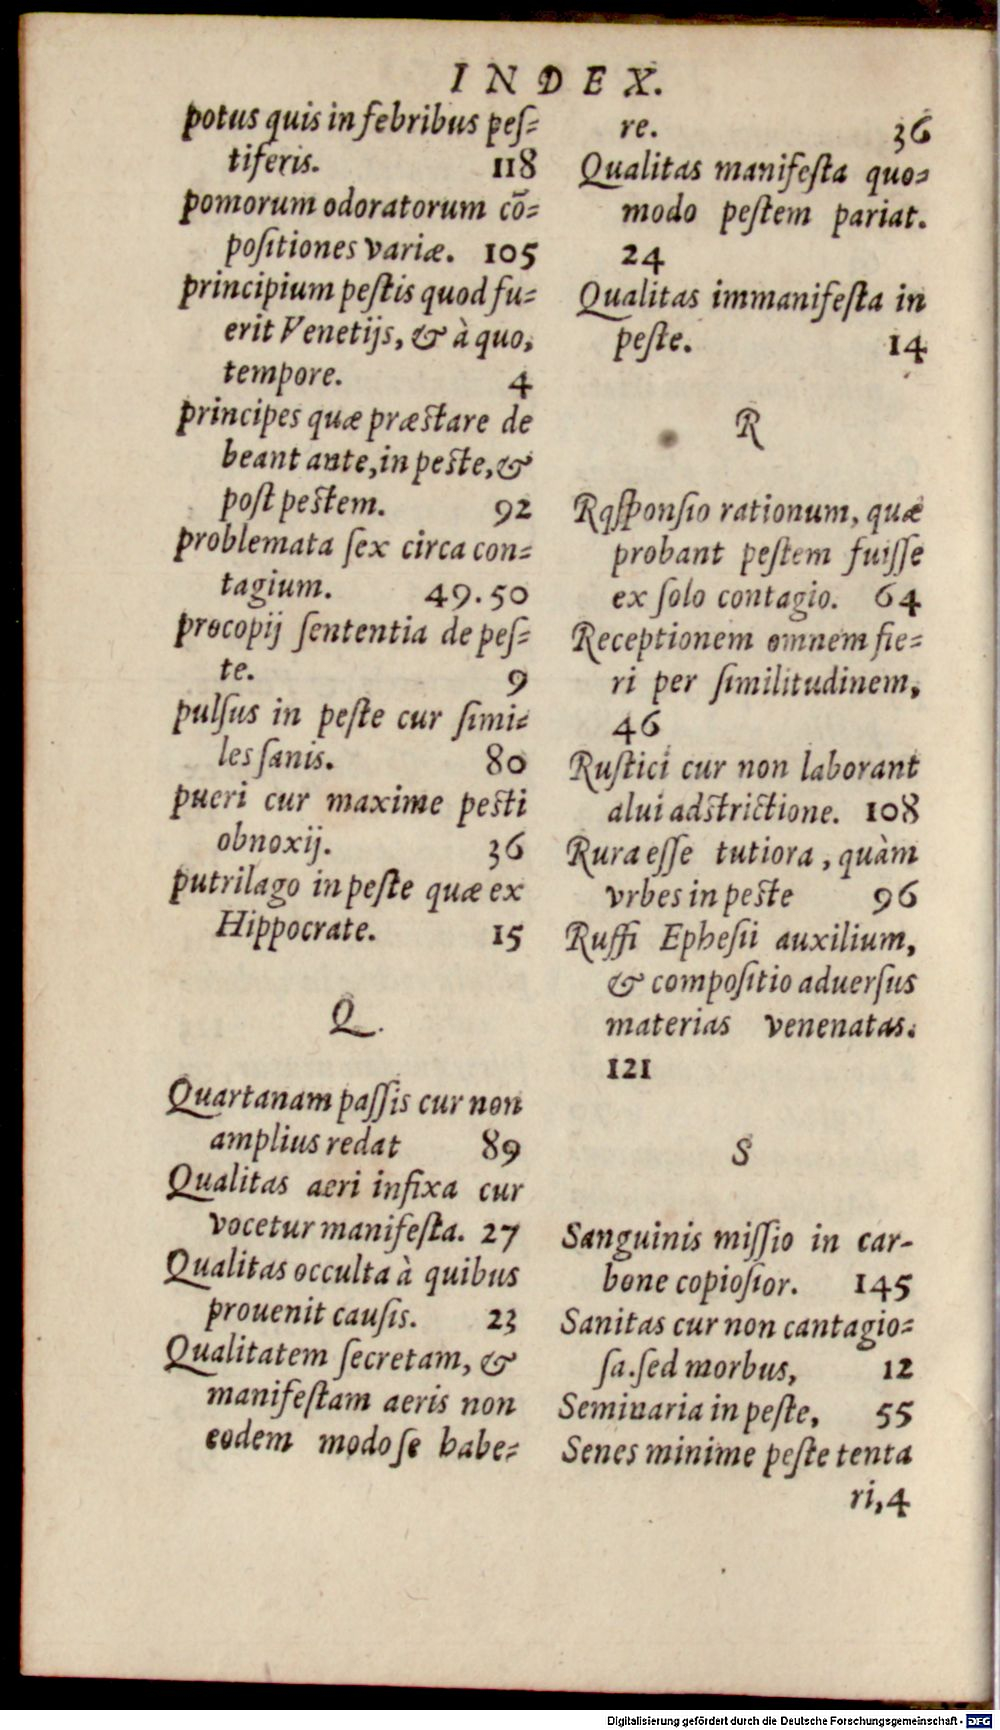 INDEX.
potus quis in febribus peſ=
tiferis. 118
pomorum odoratorum cō=
poſitiones variæ. 105
principium peſtis quod fu=
erit Venetijs, & à quo,
tempore. 4
principes quæ præſtare de
beant ante, in peſte, &
poſt peſtem. 92
problemata ſex circa con=
tagium. 49. 50
procopij ſententia de peſ=
te. 9
pulſus in peſte cur ſimi=
les ſanis. 80
pueri cur maxime peſti
obnoxij. 36
putrilago in peſte quæ ex
Hippocrate. 15
Q.
Quartanam paſſis cur non
amplius redat 89
Qualitas aeri infixa cur
vocetur manifeſta. 27
Qualitas occulta à quibus
prouenit cauſis. 23
Qualitatem ſecretam, &
manifeſtam aeris non
eodem modo ſe habe=
re. 36
Qualitas manifeſta quo=
modo peſtem pariat.
24
Qualitas immanifeſta in
peſte. 14
R
Rqſponſio rationum, quæ
probant peſtem fuiſſe
ex ſolo contagio. 64
Receptionem omnem fie=
ri per ſimilitudinem,
46
Ruſtici cur non laborant
alui adſtrictione. 108
Rura eſſe tutiora, quàm
vrbes in peſte 96
Ruffi Epheſii auxilium,
& compoſitio aduerſus
materias venenatas.
121
S
Sanguinis miſſio in car-
bone copioſior. 145
Sanitas cur non cantagio=
ſa. ſed morbus, 12
Seminaria in peſte, 55
Senes minime peſte tenta
ri, 4
Digitalisierung gefördert durch die Deutsche Forschungsgemeinschaft - DFG